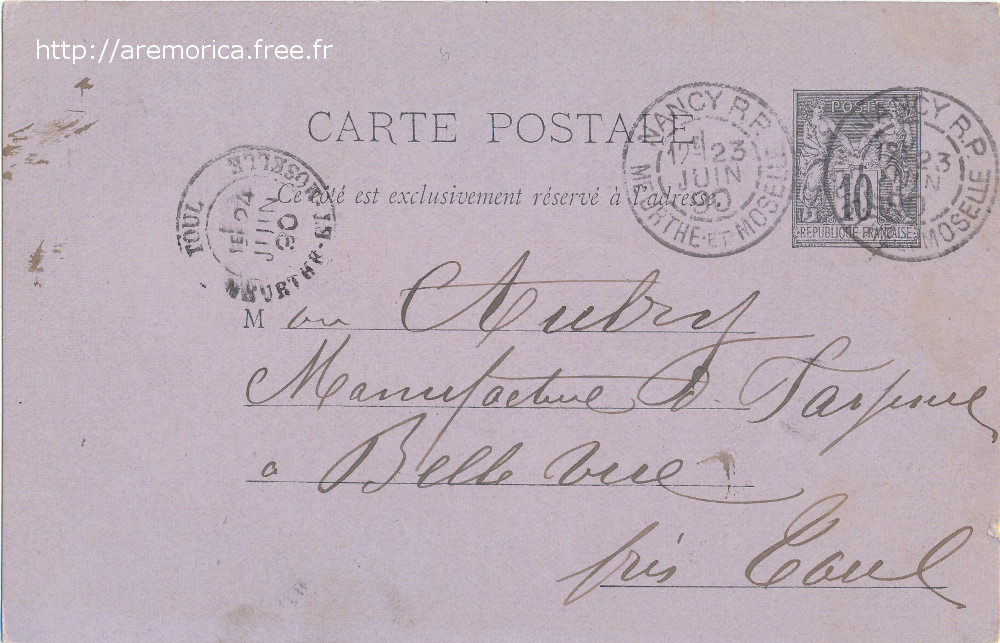 http://aremorica.free.fr
CARTE POSTALE
Ce côté est exclusivement réservé à l'adresse.
NANCY R.P.
23
JUIN
90
MEURTHE-ET-MOSELLE
POSTES
10
REPUBLIQUE FRANÇAISE
NANCY R.P.
23
JUIN
MOSELLE
TOUL
24
JUIN
90
MEURTHE-ET-MOSELLE
M on Aubry
Manufacture d
à Belle vue
près Toul